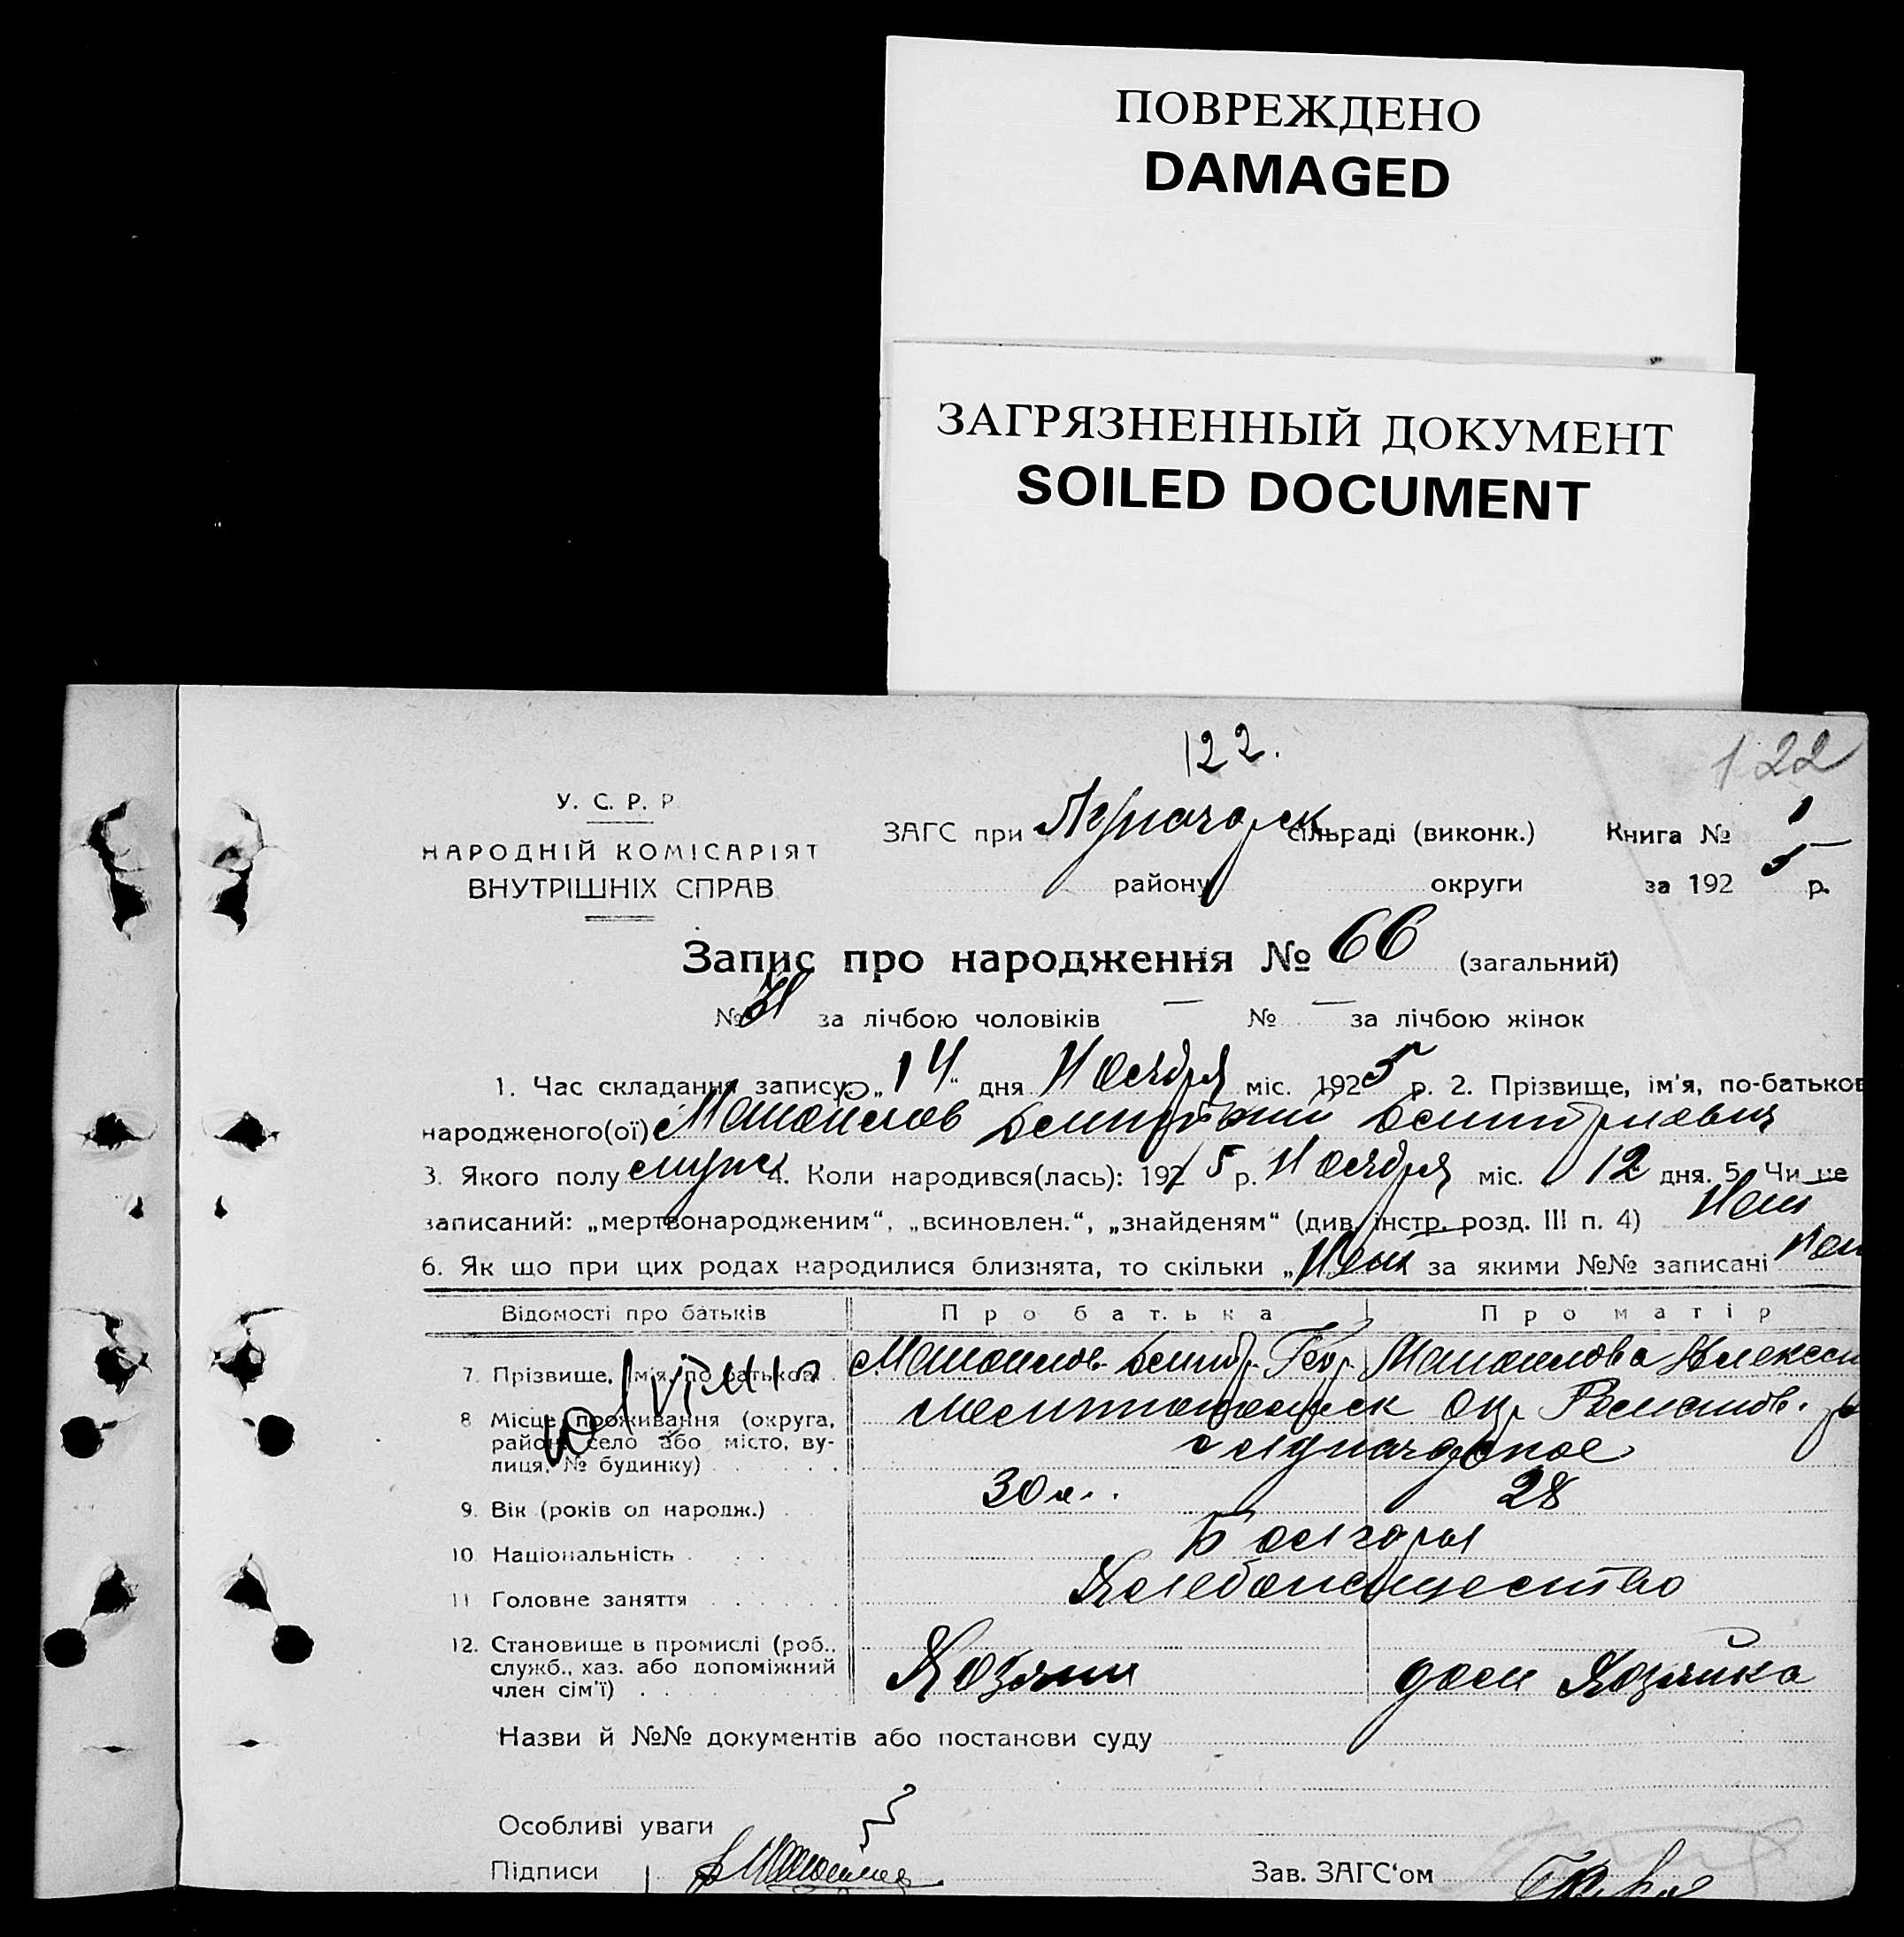 ПОВРЕЖДЕНО
DAMAGED
ЗАГРЯЗНЕННЫЙ ДОКУМЕНТ
SOILED DOCUMENT
122.
122
У. С. Р. Р
НАРОДНІЙ КОМІСАРІЯТ
ВНУТРІШНІХ СПРАВ
ЗАГС при сільраді (виконк.) Книга № 1
району округи за 1925 р.
Запис про народження № 66 (загальний)
№ 31 за лічбою чоловіків — № — за лічбою жінок
1. Час складання запису: „14" дня Ноября міс. 1925 р. 2. Прізвище, ім'я, по-батьков
народженого(ої) Манойлов Дмитрий Дмитриевич
3. Якого полу мужч 4. Коли народився(лась): 1925 р. Ноября міс. 12 дня. 5. Чи не
записаний: „мертвонародженим", „всиновлен.", „знайденям" (див. інстр. розд. III п. 4) Нет
6. Як що при цих родах народилися близнята, то скільки „Нет за якими №№ записані Нет
Відомості про батьків Про батька Про матір
7. Прізвище, ім'я, по батькові Манойлов Дмитр. Геор. Манойлова Алексан
8 Місце проживання (округа, Мелитопольск окр Романов.
район, село або місто, ву-
лиця, № будинку)
9. Вік (років од народж.) 30 л. 28
10 Національність Болгары
11 Головне заняття Хлебопашество
12. Становище в промислі (роб.,
служб., хаз. або допоміжний Хозяин дом Хозяйка
член сім'ї)
Назви й №№ документів або постанови суду
Особливі уваги
Підписи Зав. ЗАГС'ом